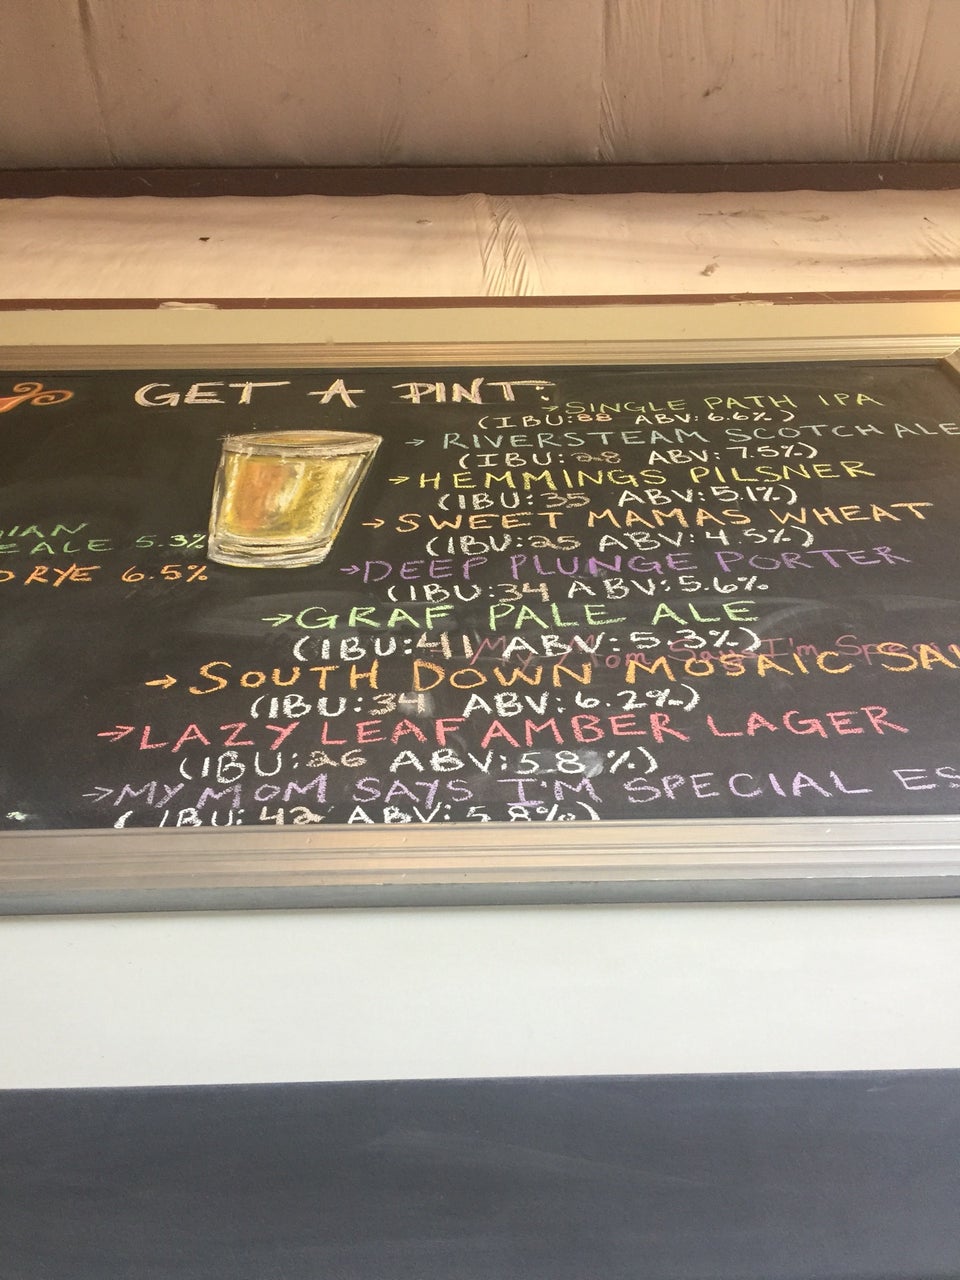 GET A PINT:
→ SINGLE PATH IPA
(IBU:88 ABV:6.6%)
→ RIVERSTEAM SCOTCH ALE
(IBU:28 ABV:7.5%)
→ HEMMINGS PILSNER
(IBU:35 ABV:5.1%)
→ SWEET MAMAS WHEAT
(IBU:25 ABV:4.5%)
→ DEEP PLUNGE PORTER
(IBU:34 ABV:5.6%
→ GRAF PALE ALE
(IBU:41 ABV:5.3%)
My Mom Says I'm Special
→ SOUTH DOWN MOSAIC
(IBU:34 ABV:6.2%)
→ LAZY LEAF AMBER LAGER
(IBU:26 ABV:5.8%)
→ MY MOM SAYS I'M SPECIAL ES
(IBU:42 ABV:5.8%)
ALE 5.3%
RYE 6.5%